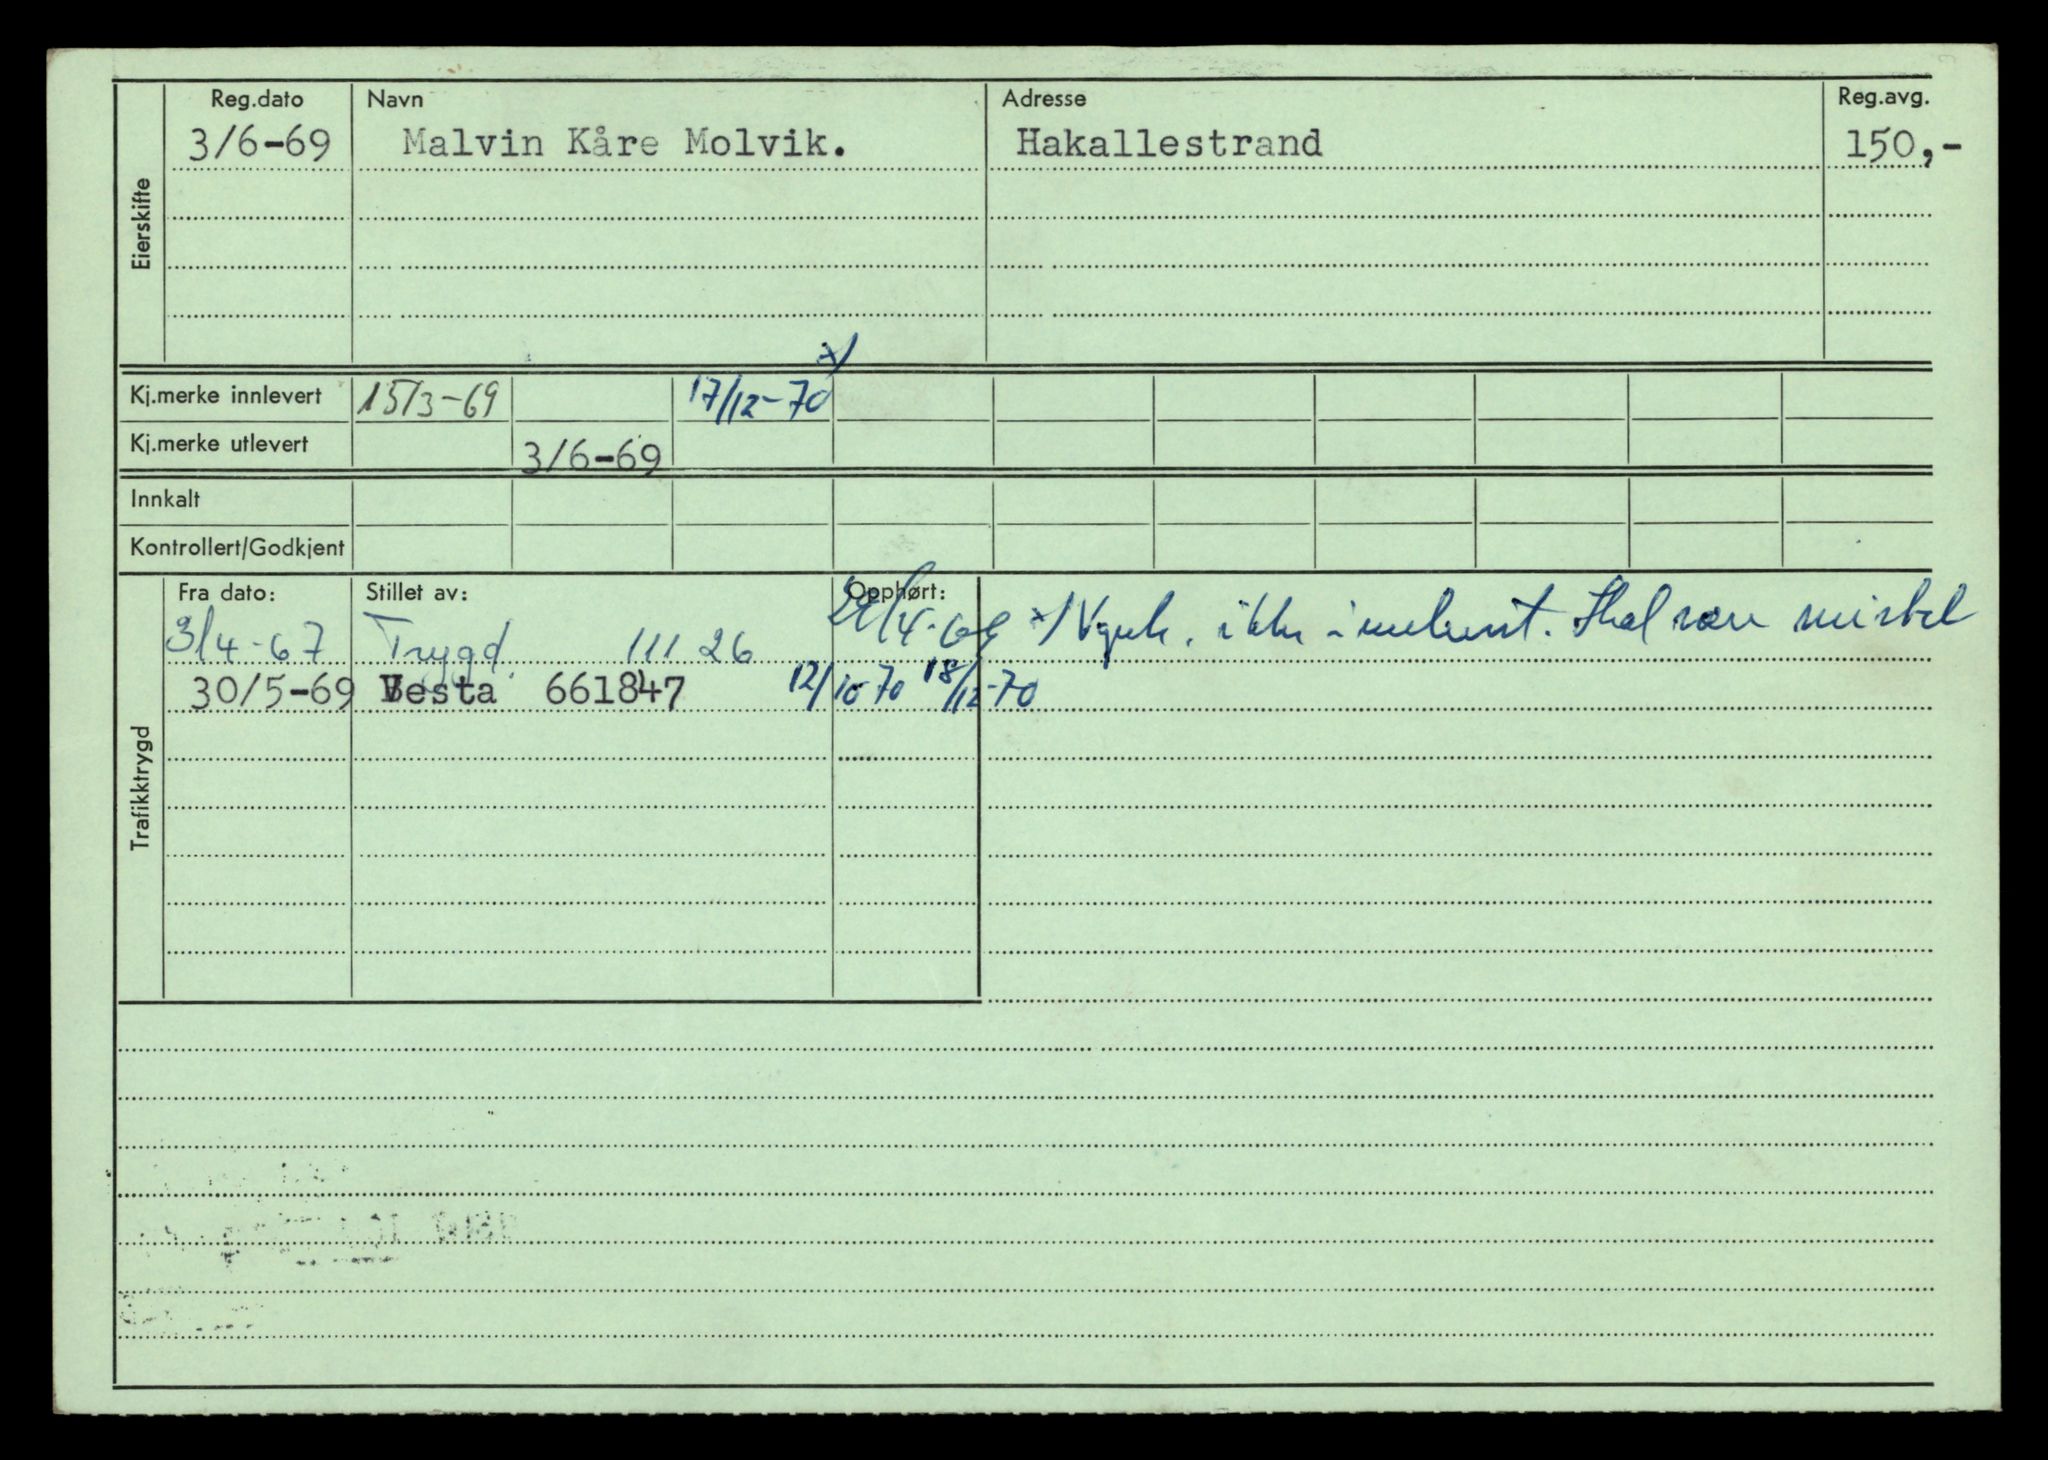 Eierskifte
Reg.dato Navn Adresse Reg.avg.
3/6-69 Malvin Kåre Molvik. Hakallestrand 150,-
x)
Kj.merke innlevert 15/3-69 17/12-70
Kj.merke utlevert 3/6-69
Innkalt
Kontrollert/Godkjent
Trafikktrygd
Fra dato: Stillet av: Opphørt:
3/4-67 Trygd. 111 26 /4-69 x) Vgnk. ikke innlevert. Skal være mistet
30/5-69 Vesta 661847 12/10-70 18/12-70